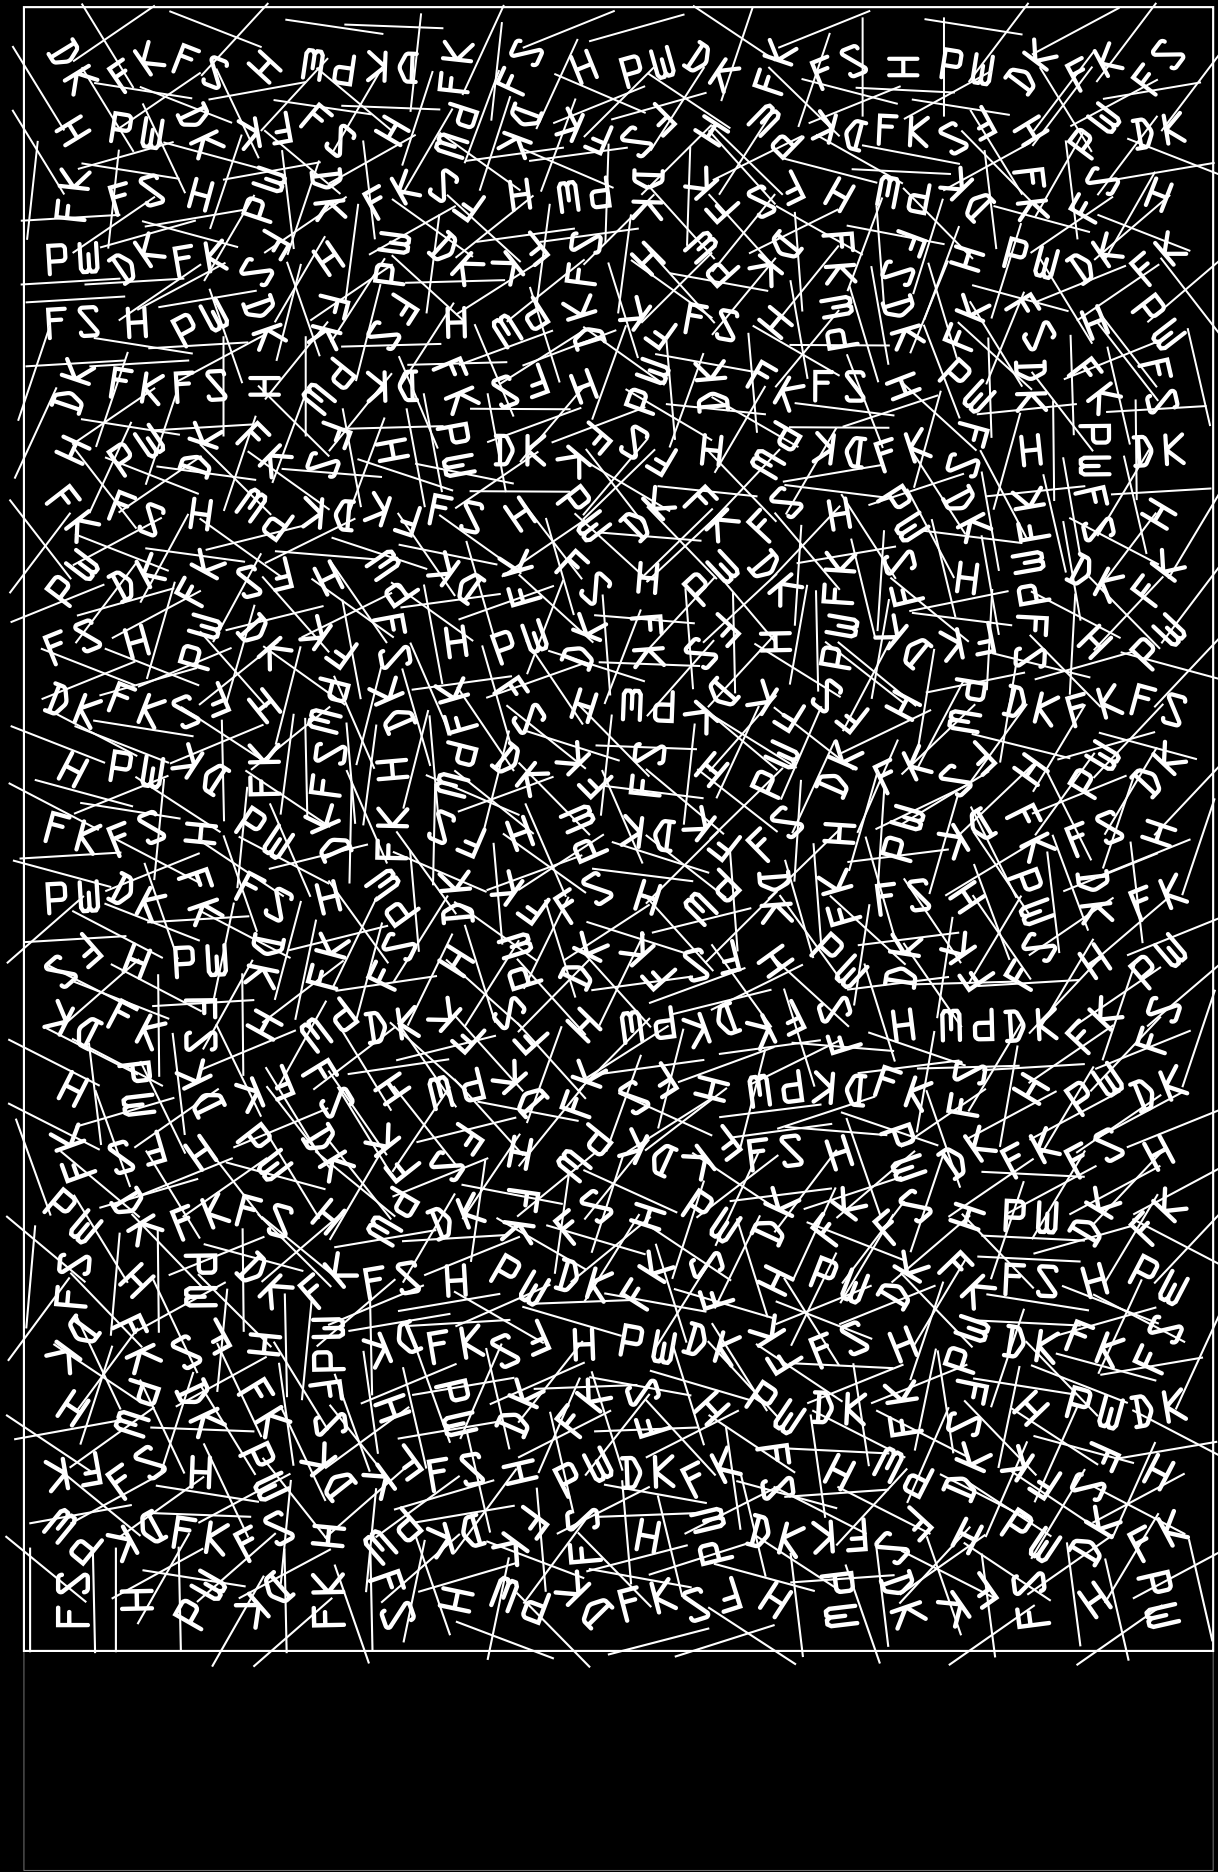 DK FK FS H PW DK FK FS H PW DK FK FS H PW DK FK FS
H PW DK FK FS H PW DK FK FS H PW DK FK FS H PW DK
FK FS H PW DK FK FS H PW DK FK FS H PW DK FK FS H
PW DK FK FS H PW DK FK FS H PW DK FK FS H PW DK FK
FS H PW DK FK FS H PW DK FK FS H PW DK FK FS H PW
DK FK FS H PW DK FK FS H PW DK FK FS H PW DK FK FS
H PW DK FK FS H PW DK FK FS H PW DK FK FS H PW DK
FK FS H PW DK FK FS H PW DK FK FS H PW DK FK FS H
PW DK FK FS H PW DK FK FS H PW DK FK FS H PW DK FK
FS H PW DK FK FS H PW DK FK FS H PW DK FK FS H PW
DK FK FS H PW DK FK FS H PW DK FK FS H PW DK FK FS
H PW DK FK FS H PW DK FK FS H PW DK FK FS H PW DK
FK FS H PW DK FK FS H PW DK FK FS H PW DK FK FS H
PW DK FK FS H PW DK FK FS H PW DK FK FS H PW DK FK
FS H PW DK FK FS H PW DK FK FS H PW DK FK FS H PW
DK FK FS H PW DK FK FS H PW DK FK FS H PW DK FK FS
H PW DK FK FS H PW DK FK FS H PW DK FK FS H PW DK
FK FS H PW DK FK FS H PW DK FK FS H PW DK FK FS H
PW DK FK FS H PW DK FK FS H PW DK FK FS H PW DK FK
FS H PW DK FK FS H PW DK FK FS H PW DK FK FS H PW
DK FK FS H PW DK FK FS H PW DK FK FS H PW DK FK FS
H PW DK FK FS H PW DK FK FS H PW DK FK FS H PW DK
FK FS H PW DK FK FS H PW DK FK FS H PW DK FK FS H
PW DK FK FS H PW DK FK FS H PW DK FK FS H PW DK FK
FS H PW DK FK FS H PW DK FK FS H PW DK FK FS H PW